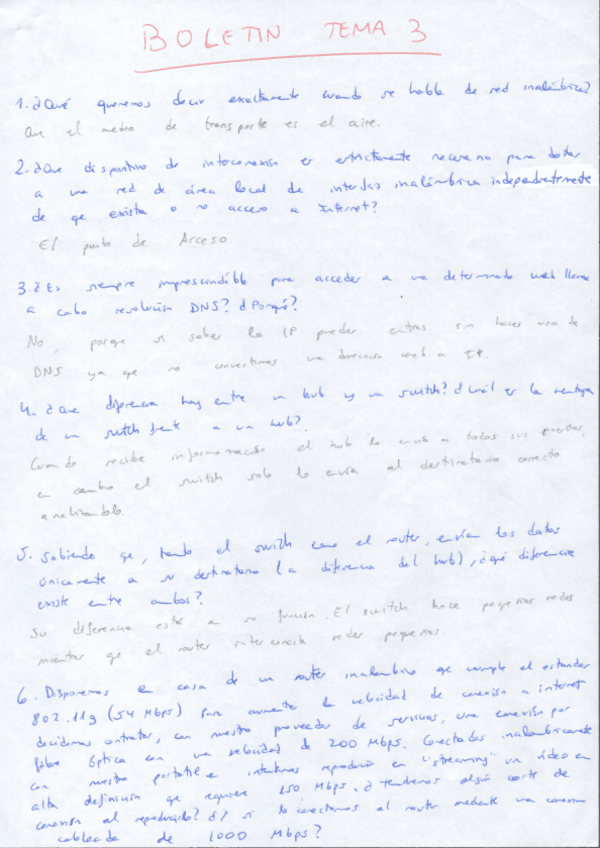 BOLETIN TEMA 3
1. ¿Qué queremos decir exactamente cuando se habla de red inalámbrica?
Que el medio de transporte es el aire.
2. ¿Que dispositivo de interconexión es estrictamente necesario para dotar
a una red de área local de interfaz inalámbrica independientemente
de qe exista o no acceso a Internet?
El punto de Acceso
3. ¿Es siempre imprescindible para acceder a una determinada web llevar
a cabo resolución DNS? ¿Porqué?
No, porque si sabes la IP puedes entrar sin hacer uso de
DNS ya que no convertimos una dirección web a IP.
4. ¿Que diferencia hay entre un hub y un switch? ¿Cuál es la ventaja
de un switch frente a un hub?
Cuando recibe información el hub lo envía a todos sus puertos,
en cambio el switch solo lo envía al destinatario correcto
analizandolo.
5. Sabiendo qe, tanto el switch como el router, envían los datos
únicamente a su destinatario (a diferencia del hub), ¿qué diferencia
existe entre ambos?
Su diferencia está en su función. El switch hace pequeñas redes
mientras qe el router interconecta redes pequeñas.
6. Disponemos en casa de un router inalámbrico qe cumple el estandar
802.11g (54 Mbps) Para aumentar la velocidad de conexión a internet
decidimos contratar, con nuestro proveedor de servicios, una conexión por
fibra óptica con una velocidad de 200 Mbps. Conectados inalámbricamente
con nuestro portatil e intentamos reproducir en "streaming" un vídeo en
alta definición que requiere 150 Mbps. ¿tendremos algún corte de
conexión al reproducirlo? ¿Y si lo conectamos al router mediante una conexión
cableada de 1000 Mbps?